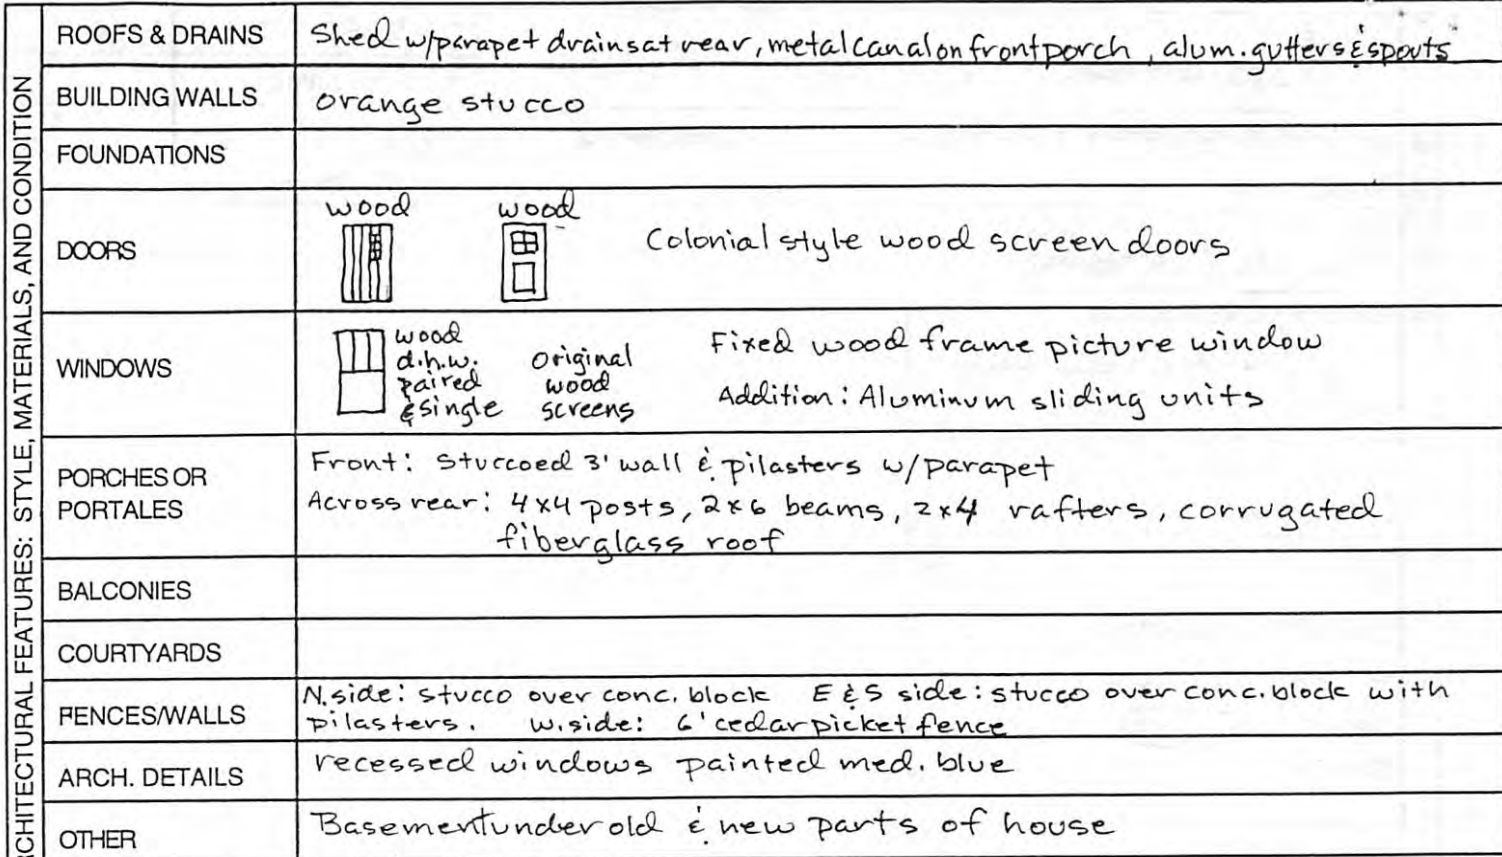 ARCHITECTURAL FEATURES: STYLE, MATERIALS, AND CONDITION
ROOFS & DRAINS Shed w/parapet drains at rear, metal canal on front porch, alum. gutters & spouts
BUILDING WALLS orange stucco
FOUNDATIONS
DOORS wood wood Colonial style wood screen doors
WINDOWS wood d.h.w. paired & single original wood screens Fixed wood frame picture window
Addition: Aluminum sliding units
PORCHES OR PORTALES Front: Stuccoed 3' wall & pilasters w/parapet
Across rear: 4x4 posts, 2x6 beams, 2x4 rafters, corrugated
fiberglass roof
BALCONIES
COURTYARDS
FENCES/WALLS N. side: stucco over conc. block E & S side: stucco over conc. block with
pilasters. W. side: 6' cedar picket fence
ARCH. DETAILS recessed windows painted med. blue
OTHER Basement under old & new parts of house